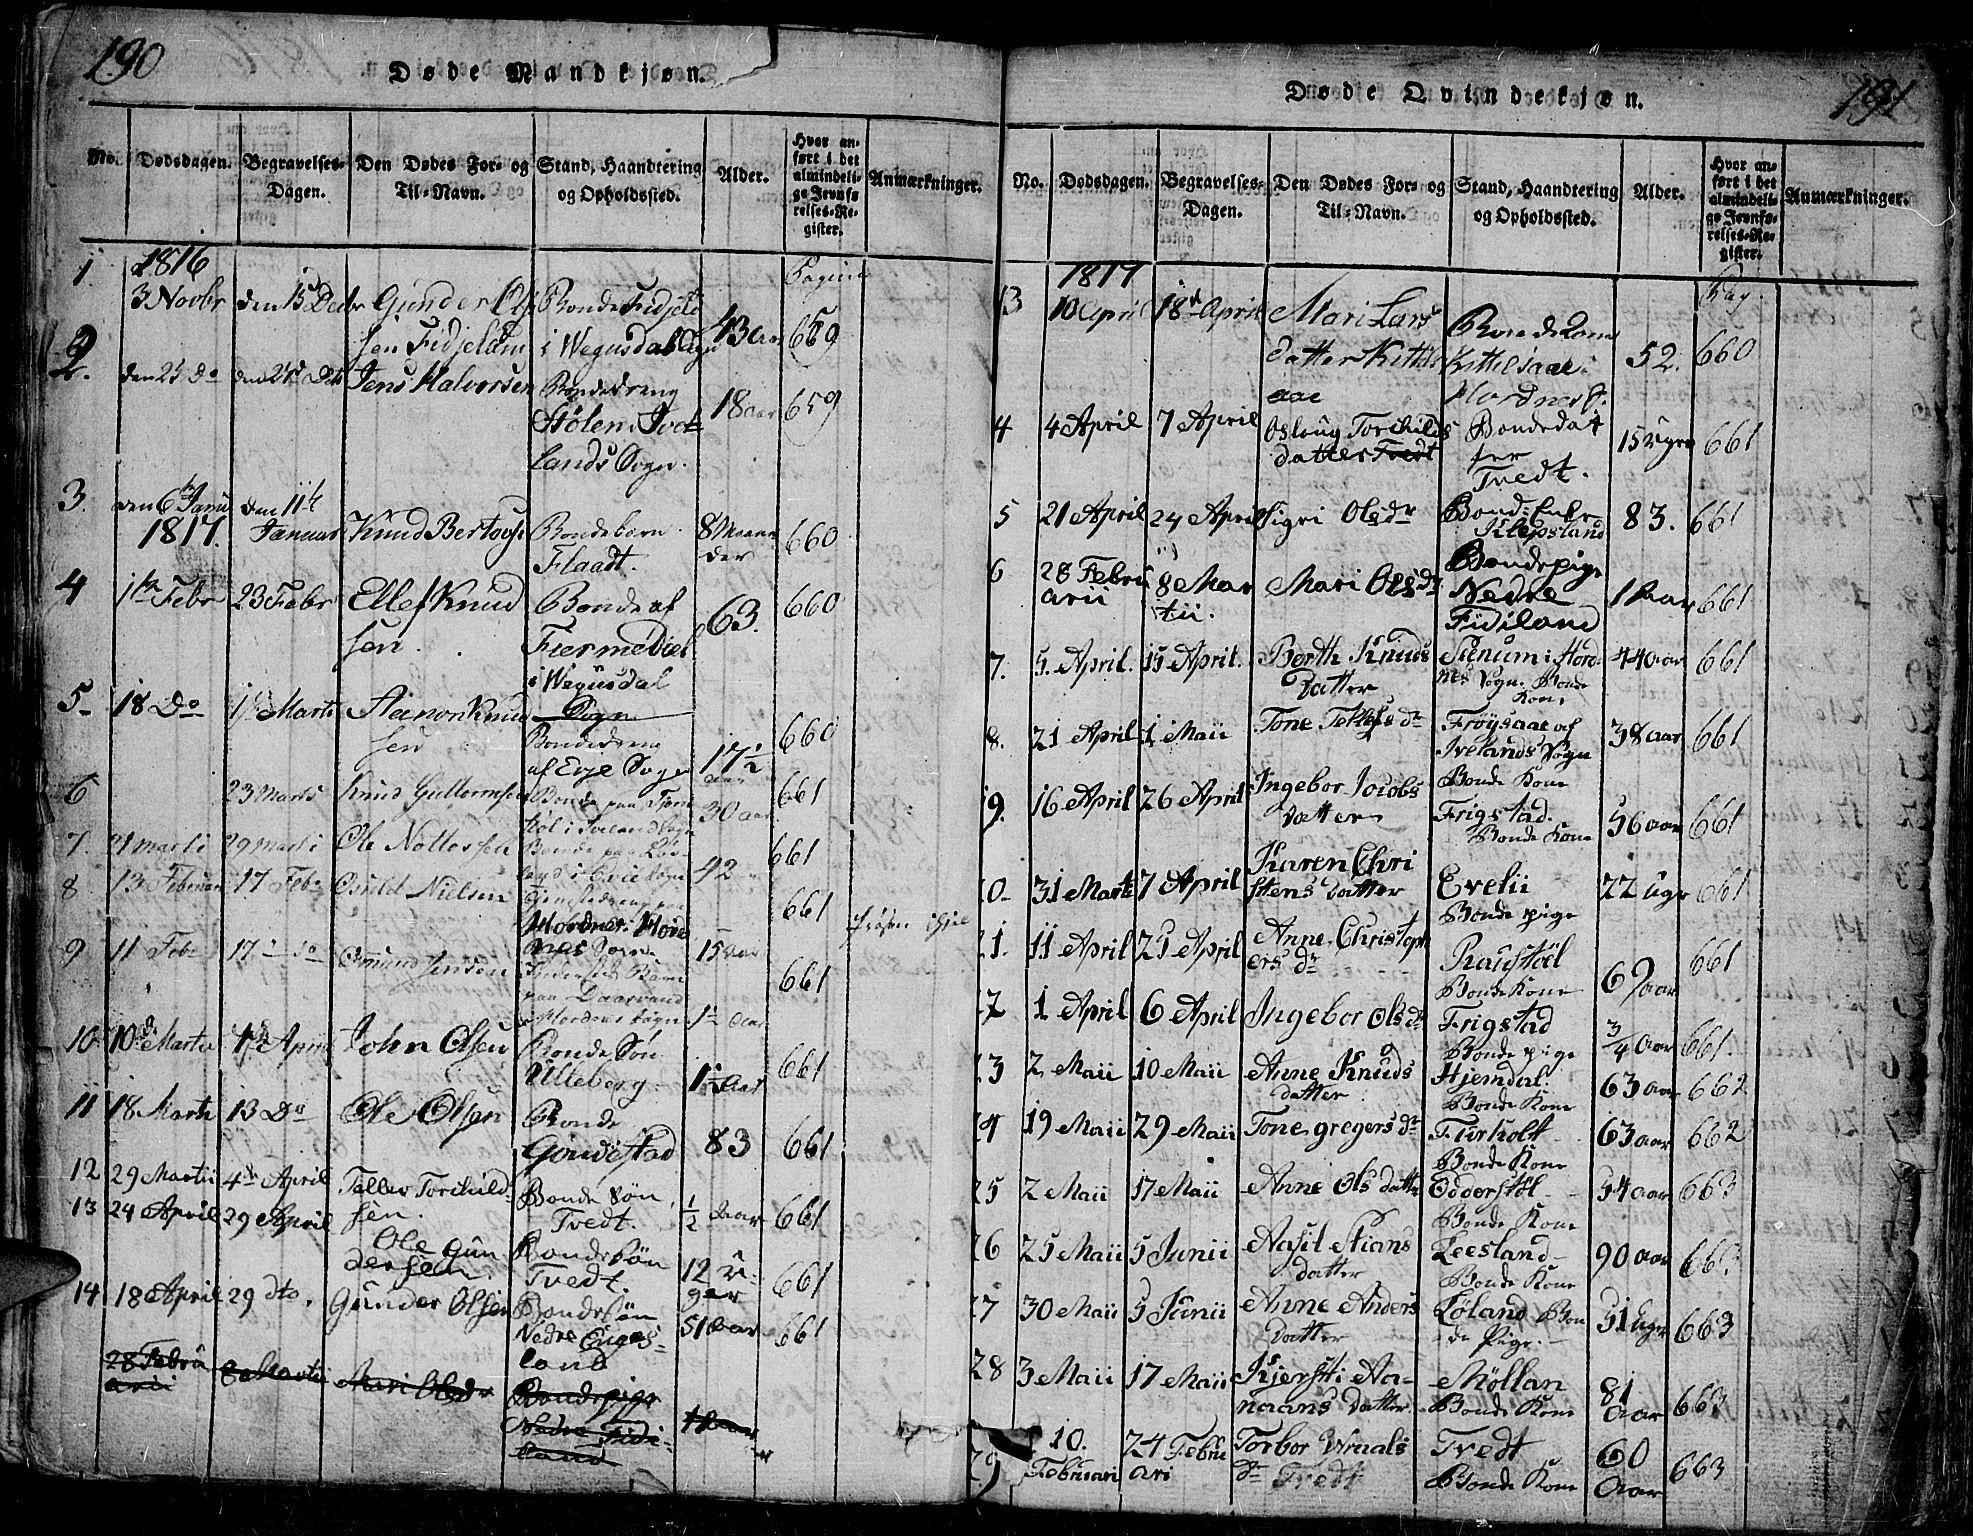 190
Døde Mandkjøn.
No. Dødsdagen. Begravelses-Dagen. Den Dødes For- og Til-Navn. Stand, Haandtering og Opholdssted. Alder. Hvor anført i det almindelige Jevnførelses-Register. Anmærkninger.
1 1816
3 Novbr den 15 Decbr Gunder Ol
sen Fidjeland Bonde Fidjeld
i Wegusdal Sogn 43 Aar 659
2. den 25 Do Jens Halvorsen Bondedreng
Hølen i Ivet
lands Sogn. 18 Aar 659
3. den 6 Janu
1817. den 11te
Januar Knud Bertovs Bondebarn
Flaadt. 8 Maane
der 660
4 1te Febr 23 Febr Ellef Knud
sen. Bonde af
Fiermedal
i Wegusdal
Sogn 63. 660
5 18 Do 1 Marti Aanon Knud
sen Bondedreng
af Evje Sogn 17 1/2
Aar 660
6 23 Marts Knud Guttormsen Bonde paa
i Iveland Sogn 30 aar 661
7 21 marti 29 Marti Ole Nottessen Bonde paa
i Evie Sogn 42 661
8 13 Februar 17 Feb. Nielsen
Hordnes Hord
nes Sogn 15 aar 661 frosen ihiel
9 11 Feb 17 do Omund Jensen
paa Daasvand
Hordnes Sogn 1 1/2 Aar 661
10 10de Martii April John Olsen Bonde Søn
Ulleberg. 1 1/2 Aar 661
11 18 Marti 13 Do Ole Olsen Bonde
Goudestad 83 661
12 29 Martii 4de April Tallev Torchild-
sen. Bonde Søn
Tvedt. 1/2 Aar 661
13 24 April 29 April Ole Gun
dersen. Bonde Søn
Tvedt. 12 U-
ger 661
14 18 April 29 dto. Gunder Olsen Bondesøn
Nedre Enges-
land 51 Aar 661
28 Febru
arii 8 Martii Mari Olsdr Bondepige
Nedre Fidi-
land 1 Aar
191
Døde Qvindekjøn.
No. Dødsdagen. Begravelses-Dagen. Den Dødes For- og Til-Navn. Stand, Haandtering og Opholdssted. Alder. Hvor anført i det almindelige Jevnførelses-Register. Anmærkninger.
1817 Pag.
3 10 April 18de April Mari Lars
datter Kittils
aae Bondekone
Kittelsaae i
Hordnes S. 52. 660
4 4 April 7 April Osloug Torchilds
datter Tvedt Bondedat
ter
Tvedt. 15 Uger 661
5 21 April 24 April Sigri Olsdr Bond: Enke
Klepsland 83. 661
6 28 Febru
arii 8 Mar
tii. Mari Olsdr Bondepige
Nedre
Fidiland 1 Aar 661
7. 5. April. 15 April. Berth Knuds
Datter Sunum i Hord
nes Sogn. Bonde
Kone 44 Aar 661
8. 21 April 1 Maii Tone Tellefs dr Frøysaae af
Ivelands Sogn
Bonde Kone 38 aar 661
19. 16 April 26 April Ingebor Jacobs
Datter Frigstad.
Bonde Kone 56 aar 661
20 31 Marti 7 April Karen Chri
stens Datter Evelii
Bonde pige 22 Uger 661
21. 11 April 25 April Anne Christoph
ers dr Raustøel
Bonde Kone 69 aar 661
22 1 April 6 April Ingebor Ols dr Frigstad
Bonde pige 3/4 Aar 661.
23 2 Maii 10 Maii Anne Knuds
datter Hjemdal:
Bonde Kone 63 aar 662
24 19 Maii 29 Maii Tone gregers dr Firholt
Bonde Kone 63 aar 662
25 2 Maii 17 Maii Anne Ols datter Odderstøl
Bonde Kone 54 aar 663
26 25 Maii 5 Junii Aasil Stians
datter Leesland
Bonde Kone 90 aar 663
27 30 Maii 5 Junii Anne Anders
Datter Løland Bon
de Pige. 51 Uger 663
28 3 Maii 17 Maii Kjersti Aa-
naans Datter Møllan
Bonde Kone 81
Aar 663
29 10.
Februari 24 Febru
ari Torbor Vraals
dr Tvedt Tvedt
Bonde Kone 60
Aar 663